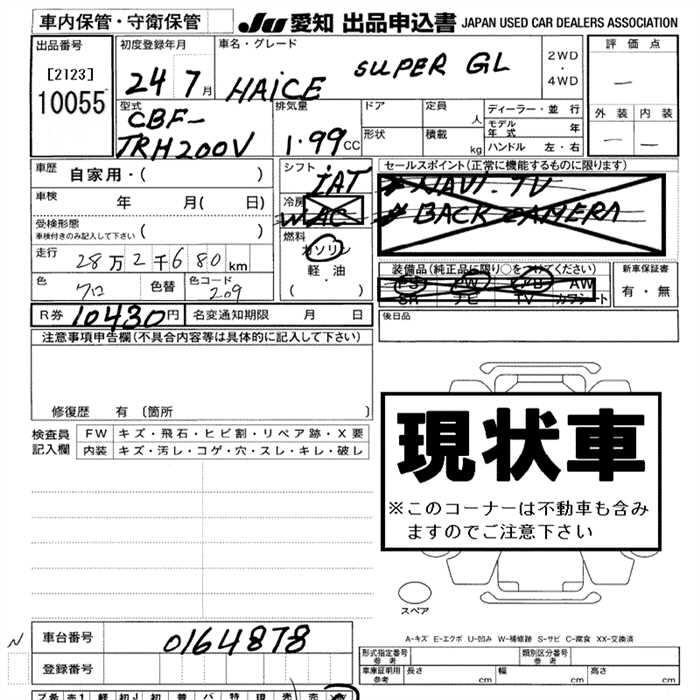 車内保管・守衛保管
JU 愛知 出品申込書 JAPAN USED CAR DEALERS ASSOCIATION
出品番号
[2123]
10055
初度登録年月
24 7月
車名・グレード
HAICE SUPER GL
2WD
・
4WD
評価点
—
外装 内装
— —
型式
CBF-
TRH200V
排気量
1.99CC
ドア
定員 人
形状
積載 kg
ディーラー・並行
モデル年式 年
ハンドル 左・右
車歴 自家用・( )
車検 年 月( 日)
受検形態
車検付きのみ記入して下さい ( )
走行
28万2千680km
色
色替
色コード
209
シフト
IAT
冷房
WAC
燃料
ガソリン
・
軽油
( ・ )
セールスポイント(正常に機能するものに限ります)
NAVI. TV
BACK CAMERA
装備品(純正品に限り○をつけてください)
PS PW AB AW
SR ナビ TV カワシート
新車保証書
有・無
R券 10430円
名変通知期限 月 日
後日品
注意事項申告欄(不具合内容等は具体的に記入して下さい)
修復歴 有 〔箇所 〕
検査員
記入欄
FW キズ・飛石・ヒビ割・リペア跡・X要
内装 キズ・汚レ・コゲ・穴・スレ・キレ・破レ
現状車
※このコーナーは不動車も含み
ますのでご注意下さい
スペア
A-キズ E-エクボ U-凹み W-補修跡 S-サビ C-腐食 XX-交換済
N
車台番号
0164878
登録番号
形式指定番号
参考
類別区分番号
参考
車庫証明用
参考
長さ cm 幅 cm 高さ cm